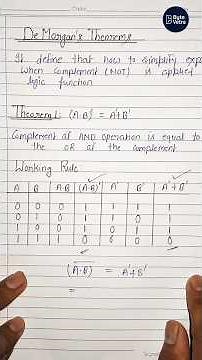 Byte
Vetra
De Morgan's Theorems
It define that how to simplify exp
when complement (NOT) is applied
logic function
Theorem 1: (A·B)' = A'+B'
Complement of AND operation is equal to
the OR of the complement
Working Rule
A B A·B (A·B)' A' B' A'+B'
0 0 0 1 1 1 1
0 1 0 1 1 0 1
1 0 0 1 0 1 1
1 1 1 0 0 0 0
(A·B)' = A'+B'
=